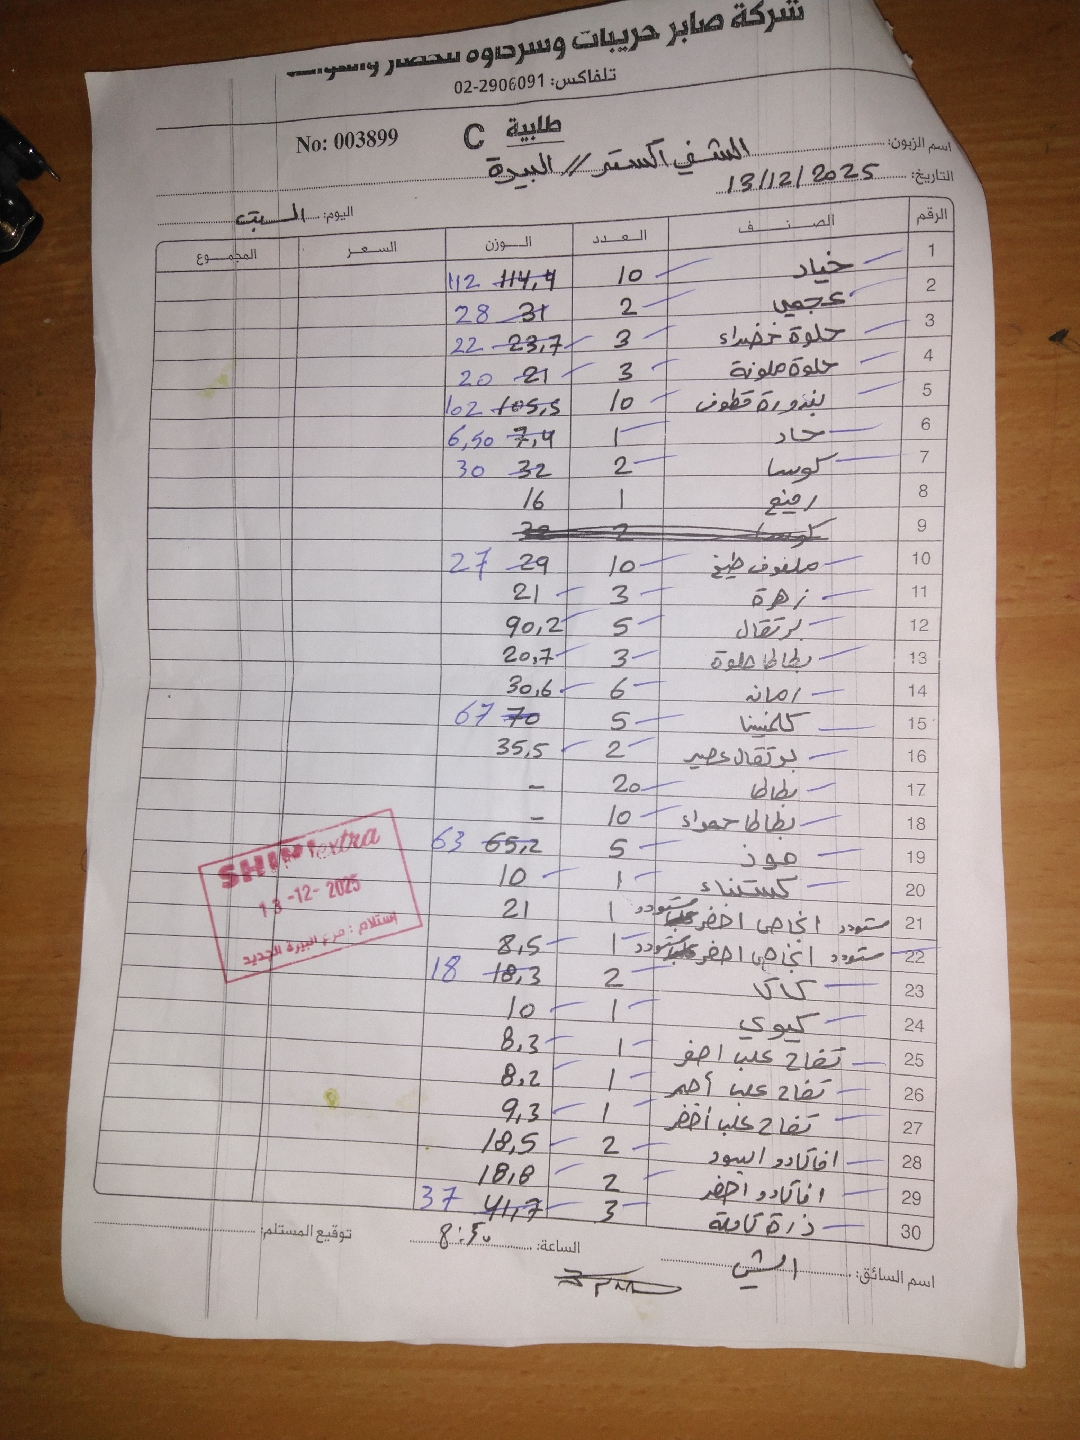 شركة صابر حريبات وسرحاوه للخضار والفواكه
تلفاكس: 02-2906091
طلبية C No: 003899
اسم الزبون: الشني اكسترا // البيرة
التاريخ: 13/12/2025
اليوم: السبت
الرقم الصنف العدد الوزن السعر المجموع
1 خيار 10 114,4 112
2 عجمي 2 31 28
3 حلوة خضراء 3 23,7 22
4 حلوة ملونة 3 21 20
5 بندورة قطوف 10 105,5 102
6 حار 1 7,4 6,50
7 كوسا 2 32 30
8 رفيع 1 16
9 كوسا 2 32
10 ملفوف طبخ 10 29 27
11 زهرة 3 21
12 برتقال 5 90,2
13 بطاطا حلوة 3 20,7
14 رمانه 6 30,6
15 كلمنتينا 5 70 67
16 برتقال عصير 2 35,5
17 بطاطا 20 -
18 بطاطا حمراء 10 -
19 موز 5 65,2 63
20 كستناء 1 10
21 مستورد انجاص اخضر مستورد 1 21
22 مستورد انجاص اصفر مستورد 1 8,5
23 كاكا 2 18,3 18
24 كيوي 1 10
25 تفاح علب اصفر 1 8,3
26 تفاح علب أحمر 1 8,2
27 تفاح علب أخضر 1 9,3
28 افاكادو اسود 2 18,5
29 افاكادو أخضر 2 18,8
30 ذرة كاملة 3 41,7 37
SHINI extra
13-12-2025
استلام: فرع البيرة الجديد
اسم السائق:
الساعة:
توقيع المستلم: